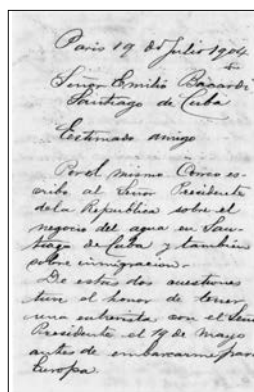 Paris 19 de Julio 1904
Señor Emilio Bacardí
Santiago de Cuba
Estimado amigo
Por el mismo Correo es-
cribo al Señor Presidente
de la Republica sobre el
negocio del agua en San-
tiago de Cuba y tambien
sobre inmigracion.
De estas dos cuestiones
tuve el honor de tener
una entrevista con el Señor
Presidente el 19 de Mayo
antes de embarcarme para
Europa.